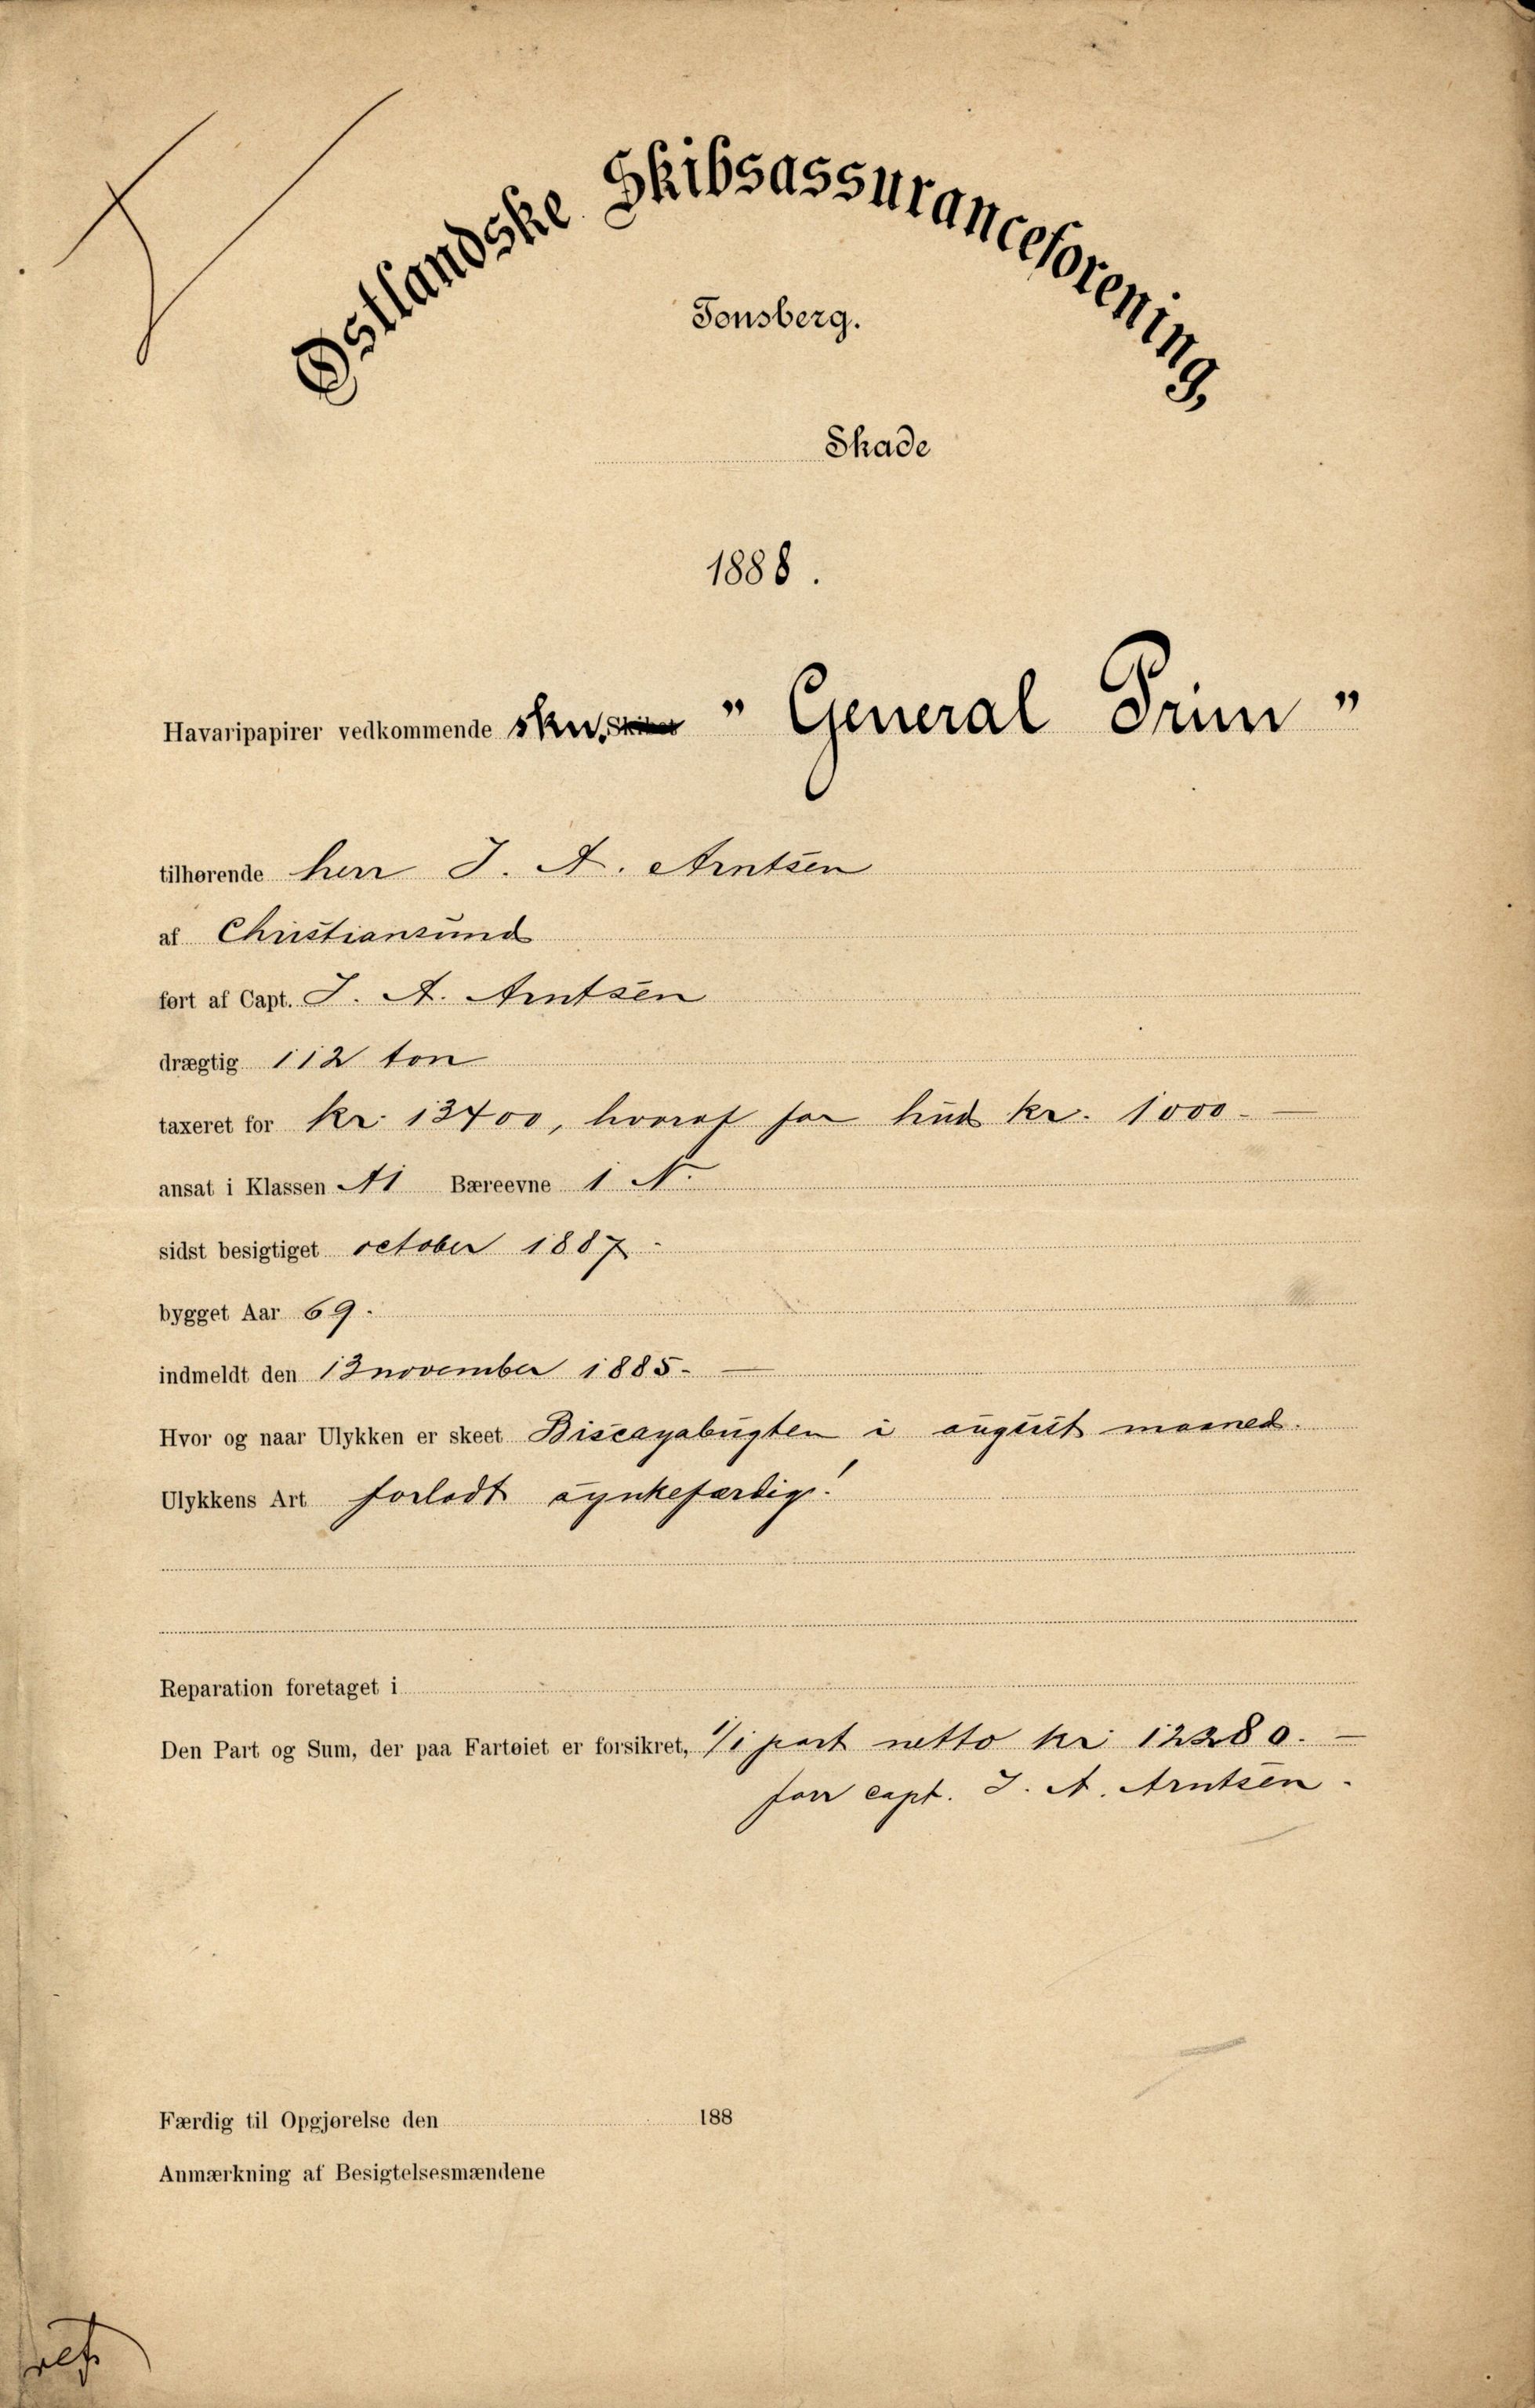 Østlandske Skibsassuranceforening,
Tønsberg.
Skade
1888.
Havaripapirer vedkommende skn. Skibet "General Prim"
tilhørende herr J. A. Arntsen
af Christiansund
ført af Capt. J. A. Arntsen
drægtig 112 ton
taxeret for kr. 13400, hvoraf for hud kr. 1000.—
ansat i Klassen A1 Bæreevne 1 N.
sidst besigtiget october 1887.
bygget Aar 69.
indmeldt den 13 november 1885.—
Hvor og naar Ulykken er skeet Biscayabugten i august maaned.
Ulykkens Art forladt synkefærdig!
Reparation foretaget i
Den Part og Sum, der paa Fartøiet er forsikret, 1/1 part netto kr 12280.—
for capt. J. A. Arntsen.
Færdig til Opgjørelse den 188
Anmærkning af Besigtelsesmændene